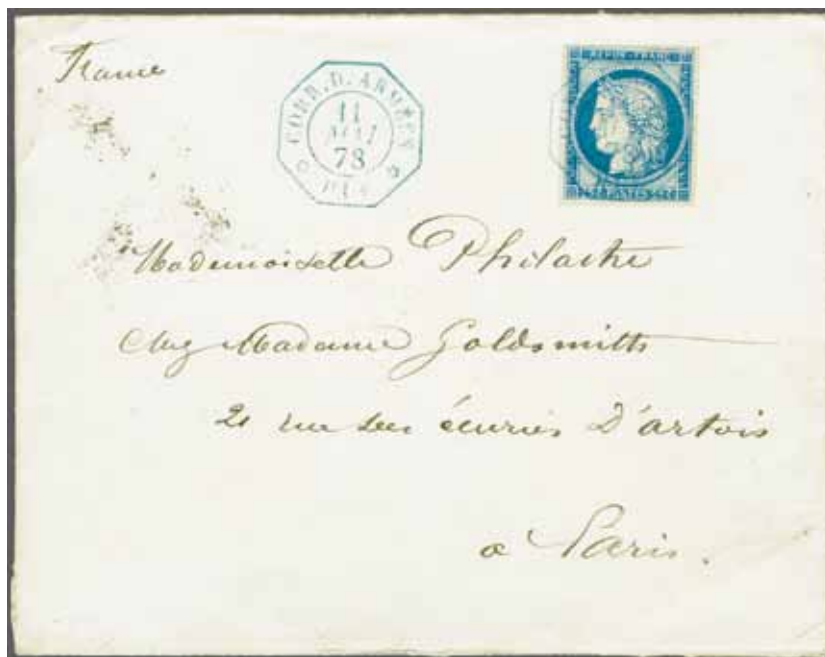 France
CORR. D. ARMÉES
11
MAI
78
REPUB FRANC
Mademoiselle Philastre
chez Madame Goldsmith
21 rue des écuries D'artois
a Paris.